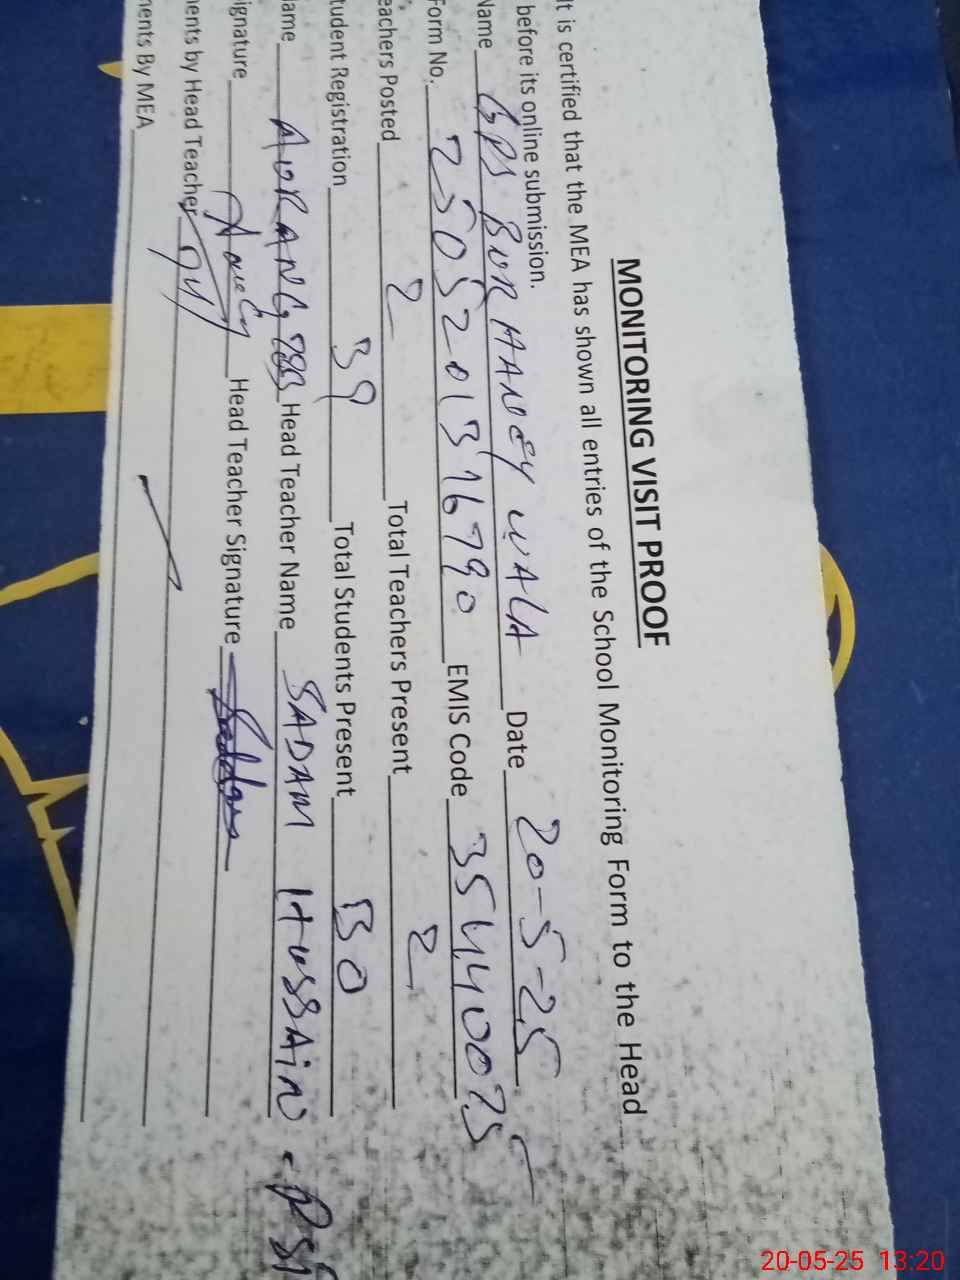 MONITORING VISIT PROOF
It is certified that the MEA has shown all entries of the School Monitoring Form to the Head
before its online submission.
Name GPS BUR HANDEY WALA Date 20-5-25
Form No. 2505201316790 EMIS Code 35440075
eachers Posted 2 Total Teachers Present 2
tudent Registration 39 Total Students Present 30
lame AURANG ZEB Head Teacher Name SADAM HUSSAIN
ignature Head Teacher Signature
nents by Head Teacher
nents By MEA
20-05-25 13:20